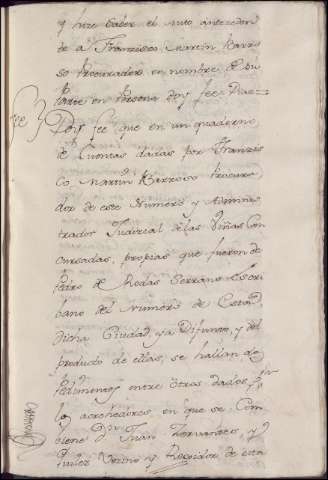 y hize saber el Auto anteceden
te a Franzisco Martin Barro
so Procurador en nombre de su
Parte en Persona doy fee=
fee Doy fee que en un quaderno
de Cuentas dadas por Franzis
co Martin Barroso Procura
dor de este Numero y Adminis
trador Judizial de las Viñas Con
cursadas, propias que fueron de
Pedro de Rodas Serrano Escri
bano del Numero de esta
dicha Ciudad ya difunto, y del
producto de ellas, se hallan
Pedimentos entre otros dados por
los acrehedores, en que se Con
tiene Dn Juan Zervantes, y
Vezino y Rexidor de esta